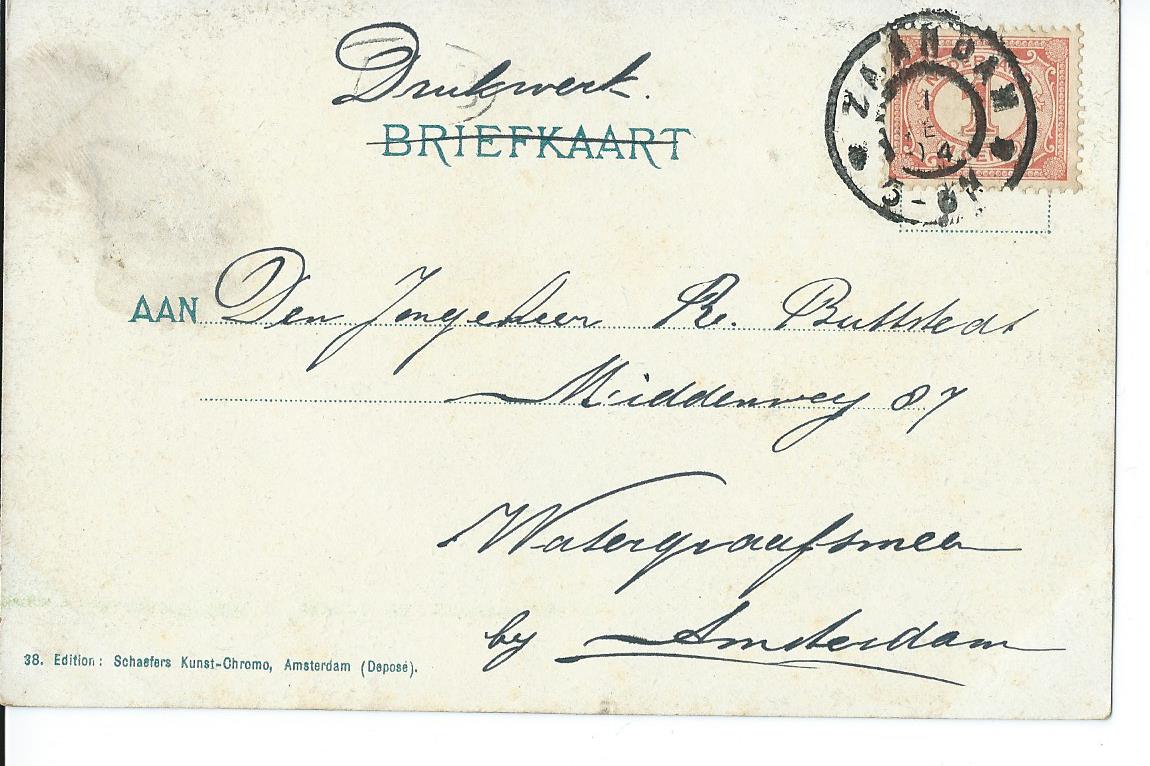 Drukwerk.
BRIEFKAART
ZAANDAM
NEDERLAND
1
04
AAN Den Jongeheer R. Buttstedt
Middenweg 87
Watergraafsmeer
by Amsterdam
38. Edition: Schaefers Kunst-Chromo, Amsterdam (Deposé).